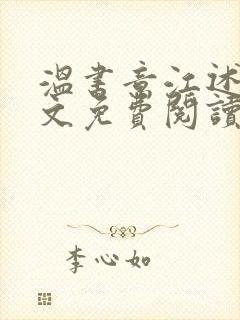 溫書章江述
文免費閱讀
李心如